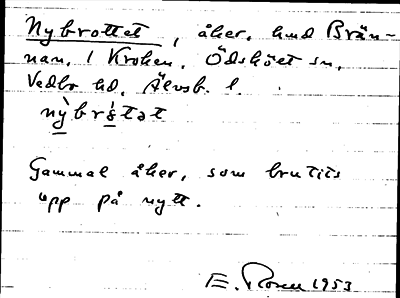 Nybrottet, åker, hmd Brän-
nan, 1 Kroken, Ödskölt sn,
Vedbo hd, Älvsb. l.
nỳbrɷ́tət
Gammal åker, som brutits
upp på nytt.
E. Rosell 1953